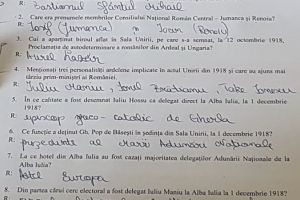 R: Bastionul Sfântul Mihail
2. Care era prenumele membrilor Consiliului Național Român Central – Jumanca și Renoiu?
R: Iosif (Jumanca) și Ioan
3. Cui a aparținut biroul aflat în Sala Unirii, pe care s-a semnat, la 12 octombrie 1918,
Proclamația de autodeterminare a românilor din Ardeal și Ungaria?
R: Aurel Lazăr
4. Menționați trei personalități ardelene implicate în actul Unirii din 1918 și care au ajuns mai
târziu prim-miniștri ai României.
R: Iuliu Maniu, Ionel Brătianu, Take Ionescu
5. În ce calitate a fost desemnat Iuliu Hossu ca delegat direct la Alba Iulia, la 1 decembrie
1918?
R: episcop greco-catolic de Gherla
6. Ce funcție a deținut Gh. Pop de Băsești în ședința din Sala Unirii, la 1 decembrie 1918?
R: președinte al Marii Adunări Naționale
7. La ce hotel din Alba Iulia au fost cazați majoritatea delegaților Adunării Naționale de la
Alba Iulia?
R: Hotel Europa
8. Din partea cărei cerc electoral a fost delegat Iuliu Maniu la Alba Iulia la 1 decembrie 1918?
R: